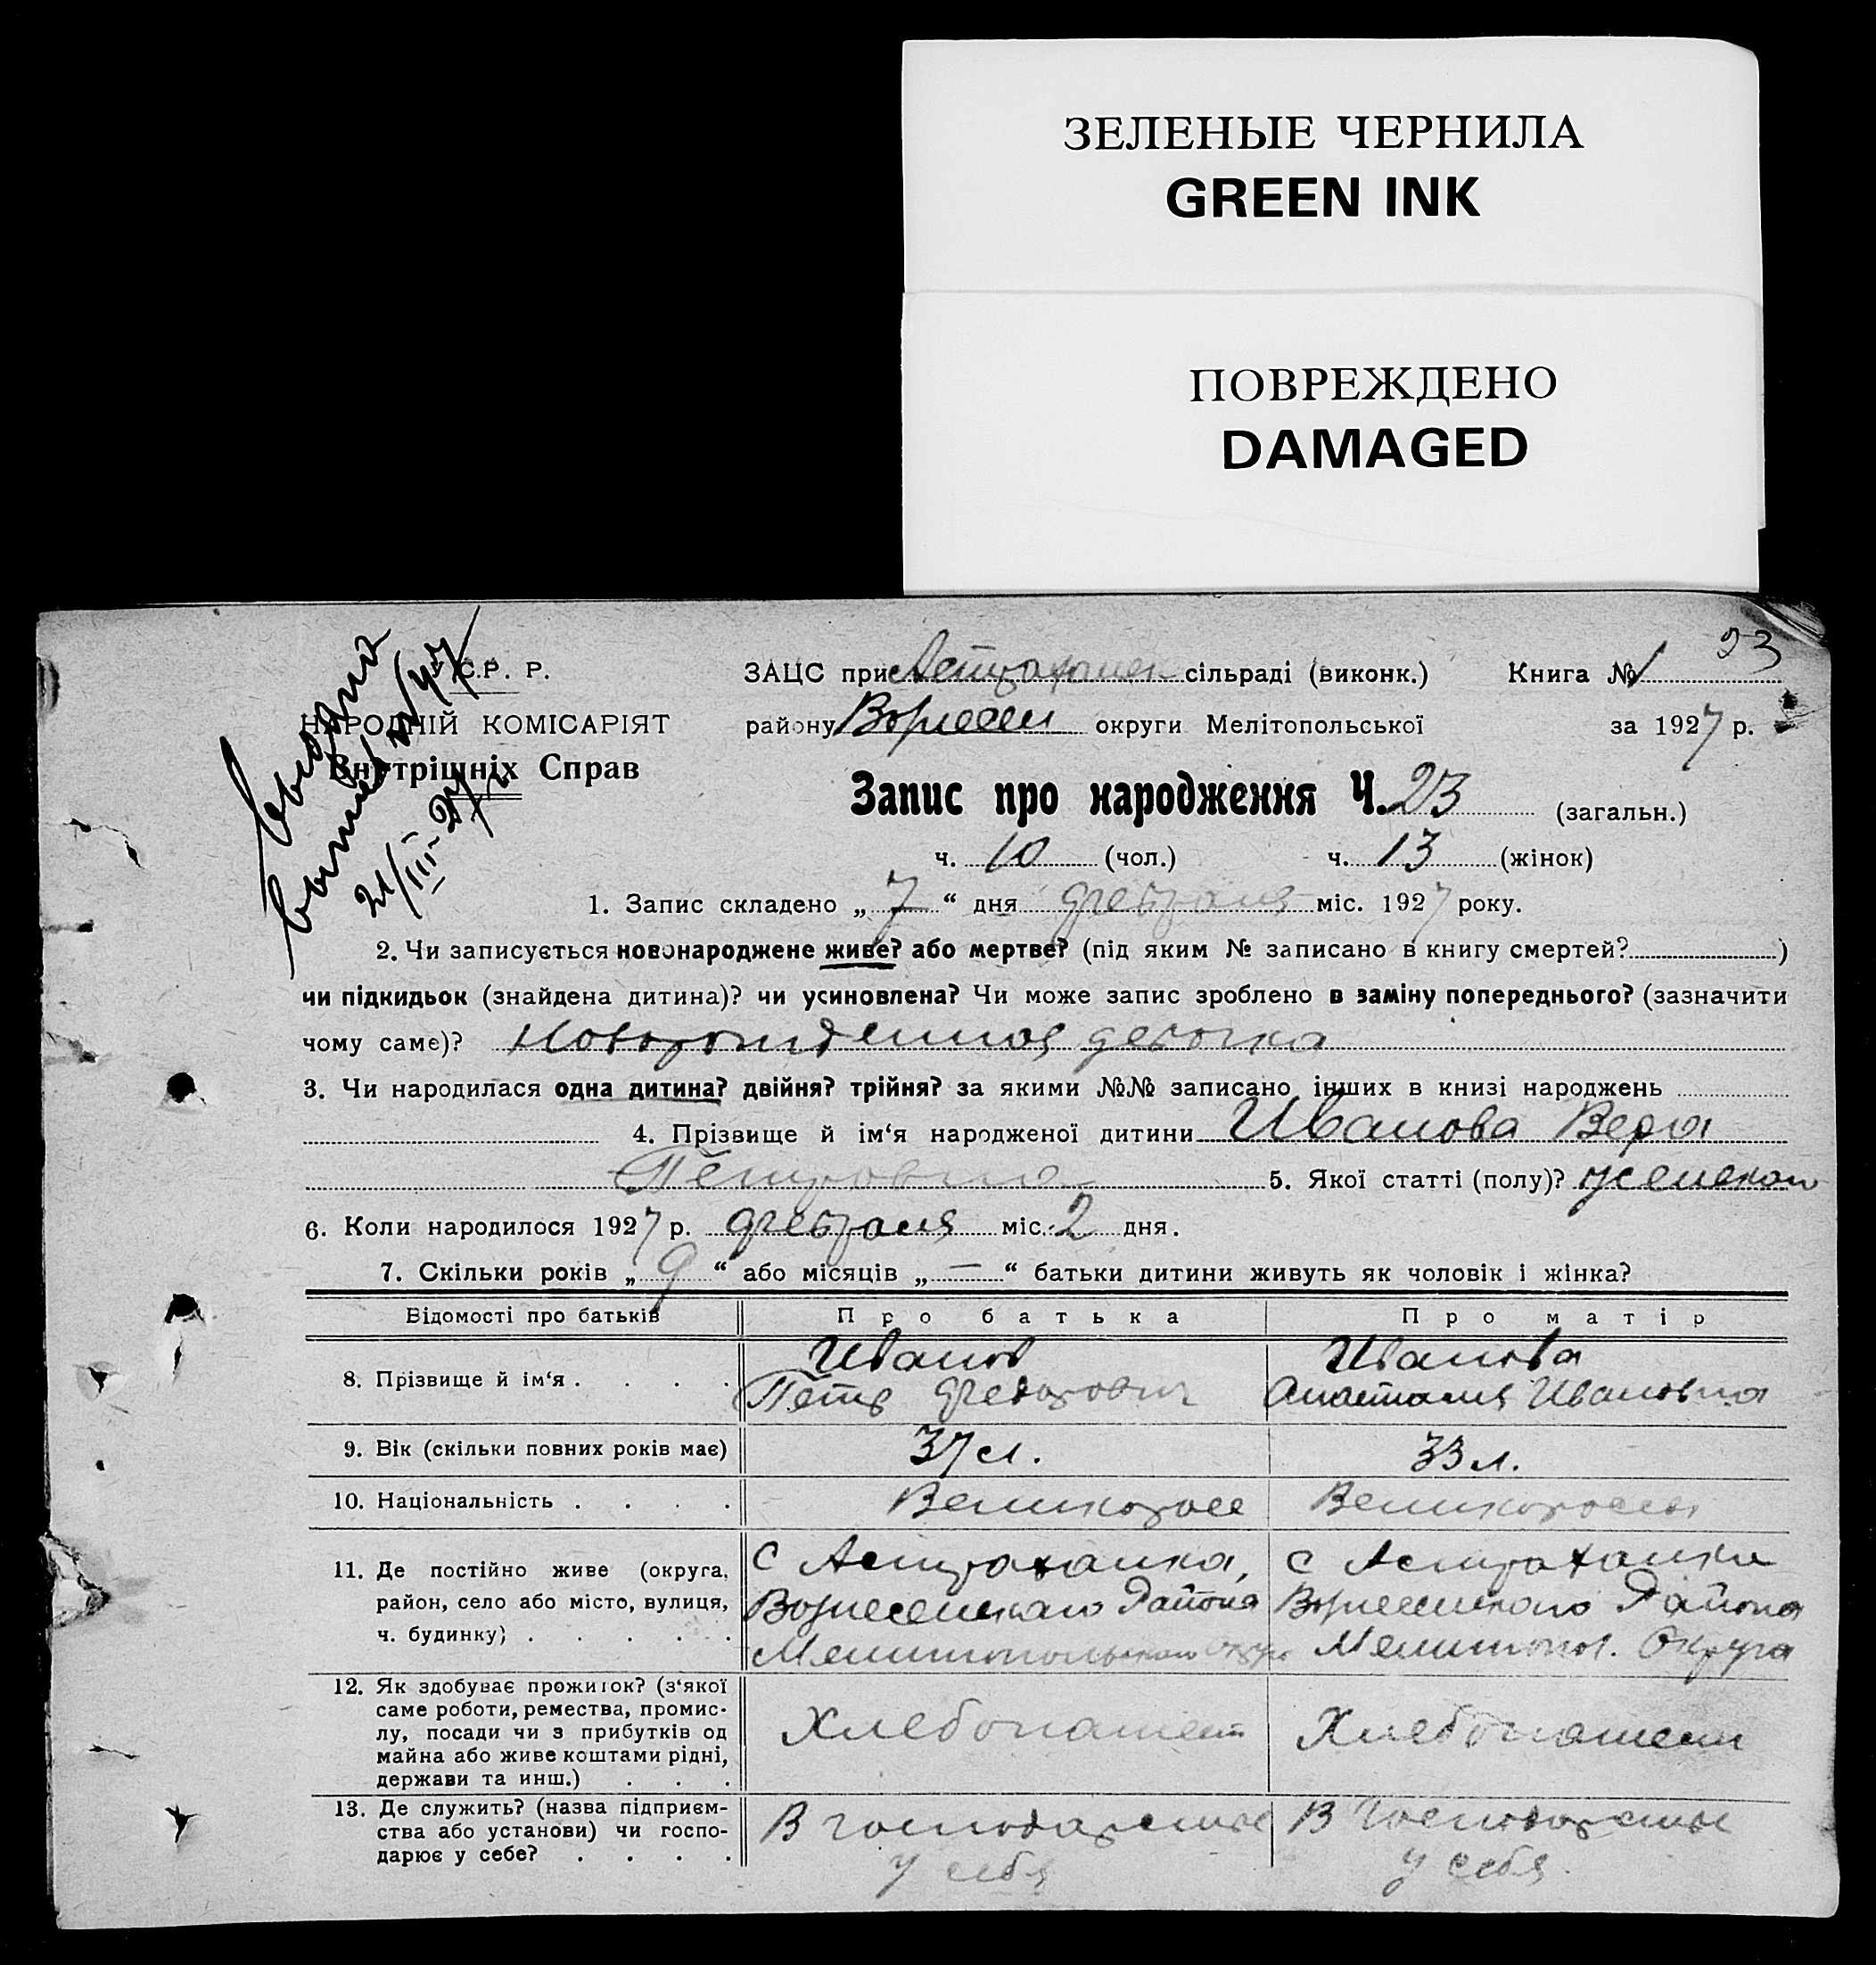 ЗЕЛЕНЫЕ ЧЕРНИЛА
GREEN INK
ПОВРЕЖДЕНО
DAMAGED
23
С.Р. Р.
ЗАЦС при Астрахонск сільраді (виконк.) Книга № 1
НАРОДНІЙ КОМІСАРІЯТ
району Вознесен округи Мелітопольської за 1927 р.
Внутрішніх Справ
21/III-
Запис про народження Ч. 23 (загальн.)
ч. 10 (чол.) ч. 13 (жінок)
1. Запис складено „ 7 “ дня февраля міс. 1927 року.
2. Чи записується новонароджене живе? або мертве? (під яким № записано в книгу смертей? )
чи підкидьок (знайдена дитина)? чи усиновлена? Чи може запис зроблено в заміну попереднього? (зазначити
чому саме)? Новорожденная девочка
3. Чи народилася одна дитина? двійня? трійня? за якими №№ записано інших в книзі народжень
4. Прізвище й ім‘я народженої дитини Иванова Вера
Петровна 5. Якої статті (полу)? женскаго
6. Коли народилося 1927 р. февраля міс. 2 дня.
7. Скільки років „ 9 “ або місяців „ — “ батьки дитини живуть як чоловік і жінка?
Відомості про батьків Про батька Про матір
8. Прізвище й ім‘я . . . . Иванов Иванова
Петр Федорович Анастасия Ивановна
9. Вік (скільки повних років має) 37 л. 33 л.
10. Національність . . . . Великоросс Великороссы
11. Де постійно живе (округа, с Астраханка, с Астраханки
район, село або місто, вулиця, Вознесенскаго Района Вознесенскаго Района
ч. будинку) . . . . . Мелитопольскаго Округа Мелитопол. Округа
12. Як здобуває прожиток? (з‘якої
саме роботи, ремества, промис-
лу, посади чи з прибутків од Хлебопашест Хлебопашест
майна або живе коштами рідні,
держави та инш.) . . .
13. Де служить? (назва підприєм- В господарстве В господарстве
ства або установи) чи госпо- у себя у себя
дарює у себе? . . . .